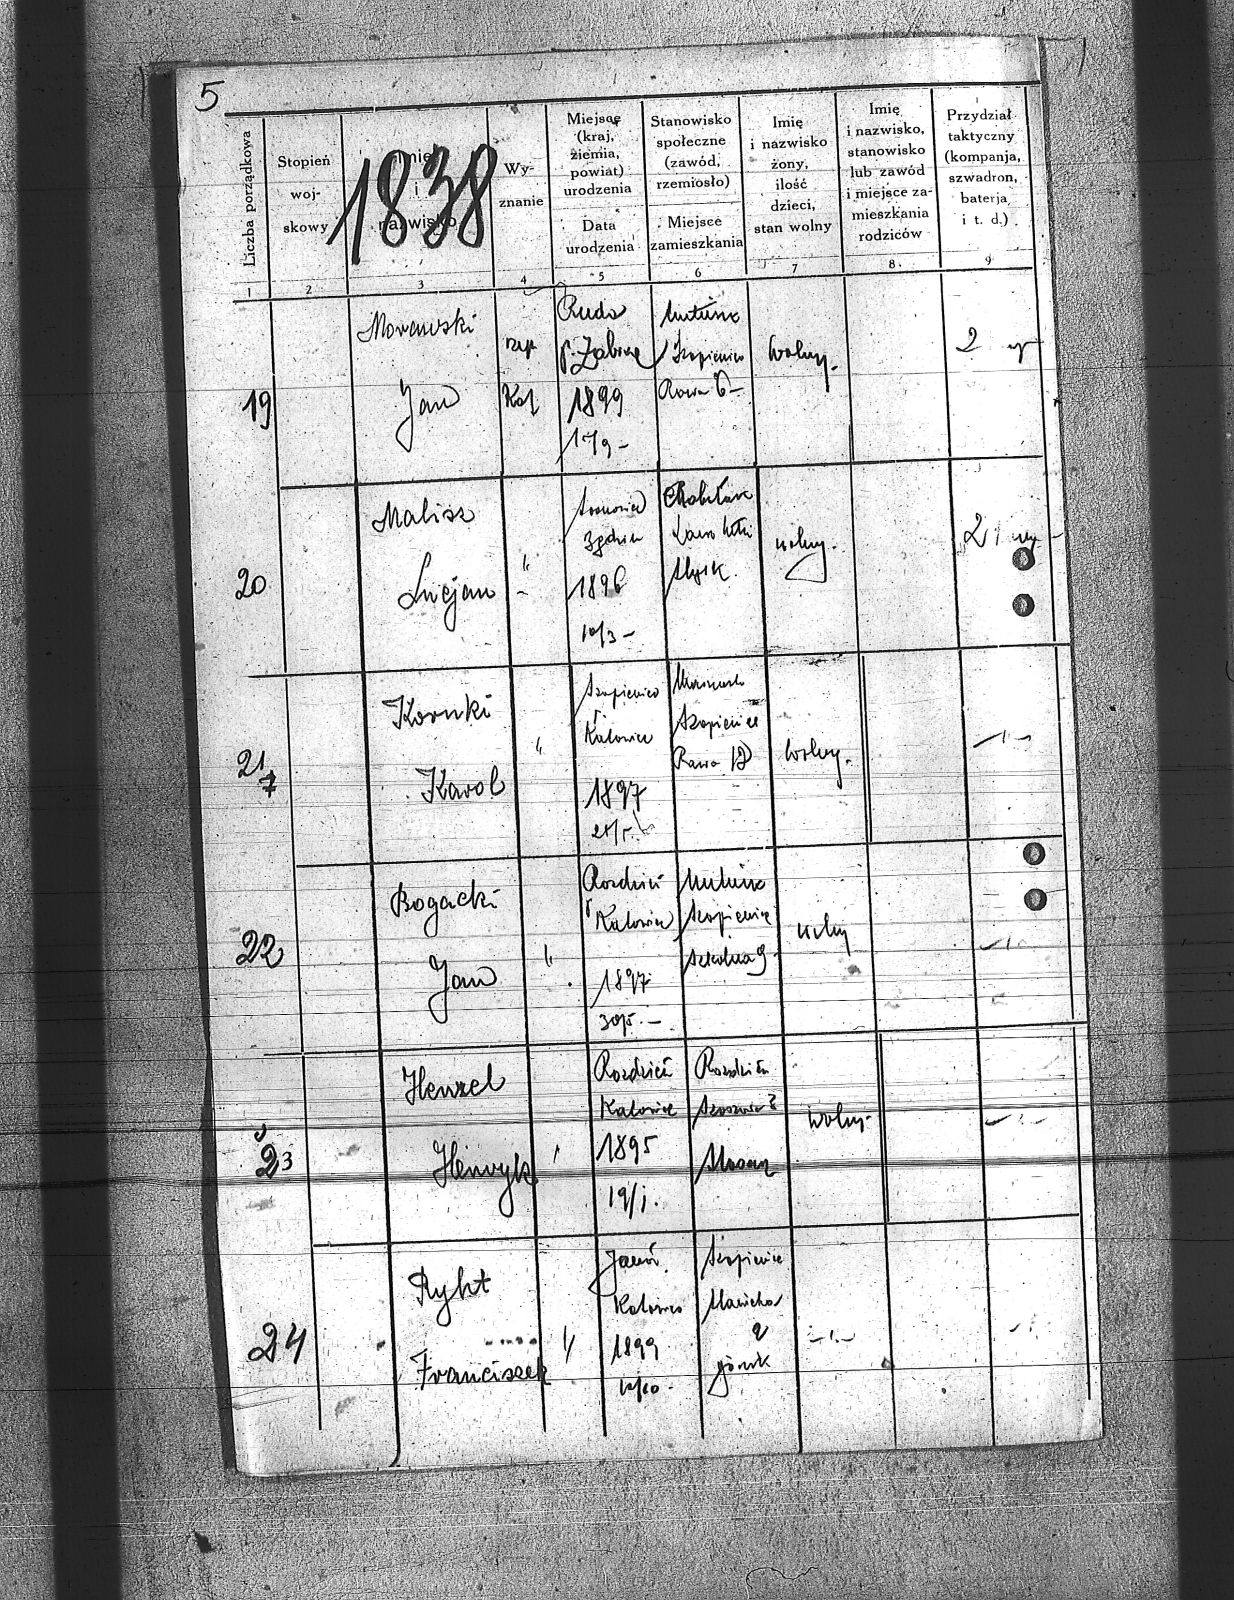 5
Liczba porządkowa
Stopień
woj-
skowy
Imię
i
nazwisko
1838
Wy-
znanie
Miejsce
(kraj,
ziemia,
powiat)
urodzenia
Data
urodzenia
Stanowisko
społeczne
(zawód,
rzemiosło)
Miejsce
zamieszkania
Imię
i nazwisko
żony,
ilość
dzieci,
stan wolny
Imię
i nazwisko,
stanowisko
lub zawód
i miejsce za-
mieszkania
rodziców
Przydział
taktyczny
(kompanja,
szwadron,
baterja
i t. d.)
1 2 3 4 5 6 7 8 9
19
Morawski
Jan
rzym
Kat
Ruda
p. Zabrze
1899
17/9 -
Szopienice
Rawa 6 -
wolny.
2
20
Malisz
Lucjan
"
1896
10/3 -
wolny.
2
21
7
Kornki
Karol
"
Szopienice
Katowice
1897
Szopienice
Rawa 13
wolny.
22
Bogacki
Jan
"
Rozdzień
Katowice
1897
30/5. -
Szopienice
Szkolna 9
wolny
23
Henzel
Henryk
"
Rozdzień
Katowice
1895
19/1.
Rozdzień
wolny.
24
Rykt
Franciszek
"
Katowice
1899
10/10 -
Szopienice
2
górnik